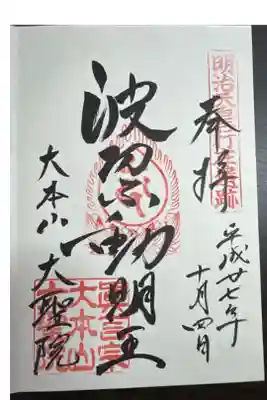 奉拝
平成廿七年
十月四日
波切不動明王
大本山 大聖院
明治天皇行在所
跡
真言宗
大本山